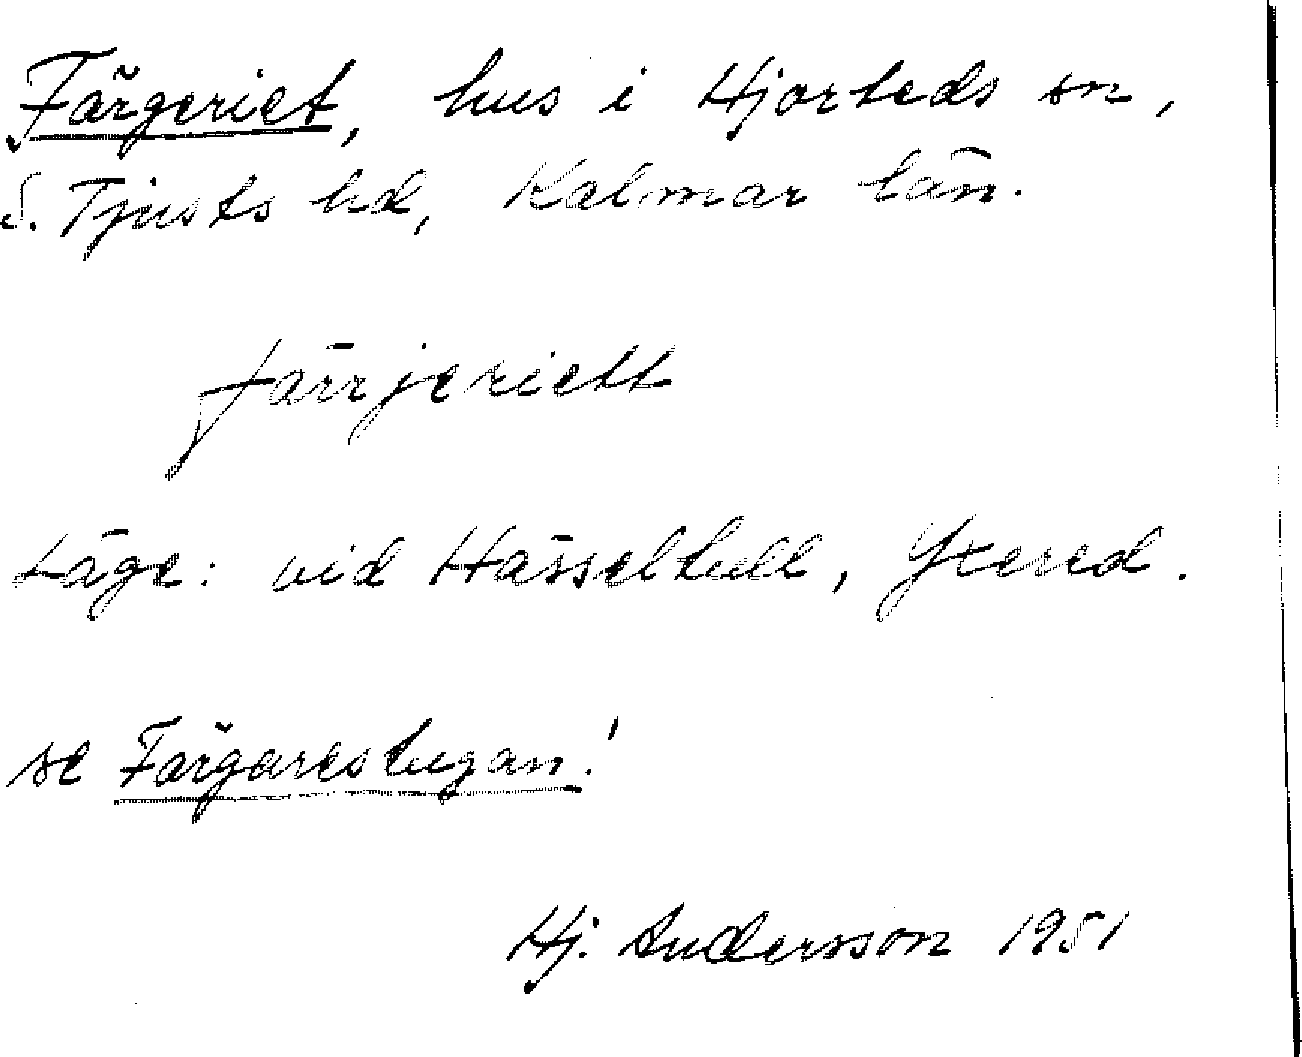 Färgeriet, hus i Hjorteds sn,
S. Tjusts hd, Kalmar län.
färrjeriett
Läge: vid Hässeltull, Yxered.
se Färgarestugan!
Hj. Andersson 1951